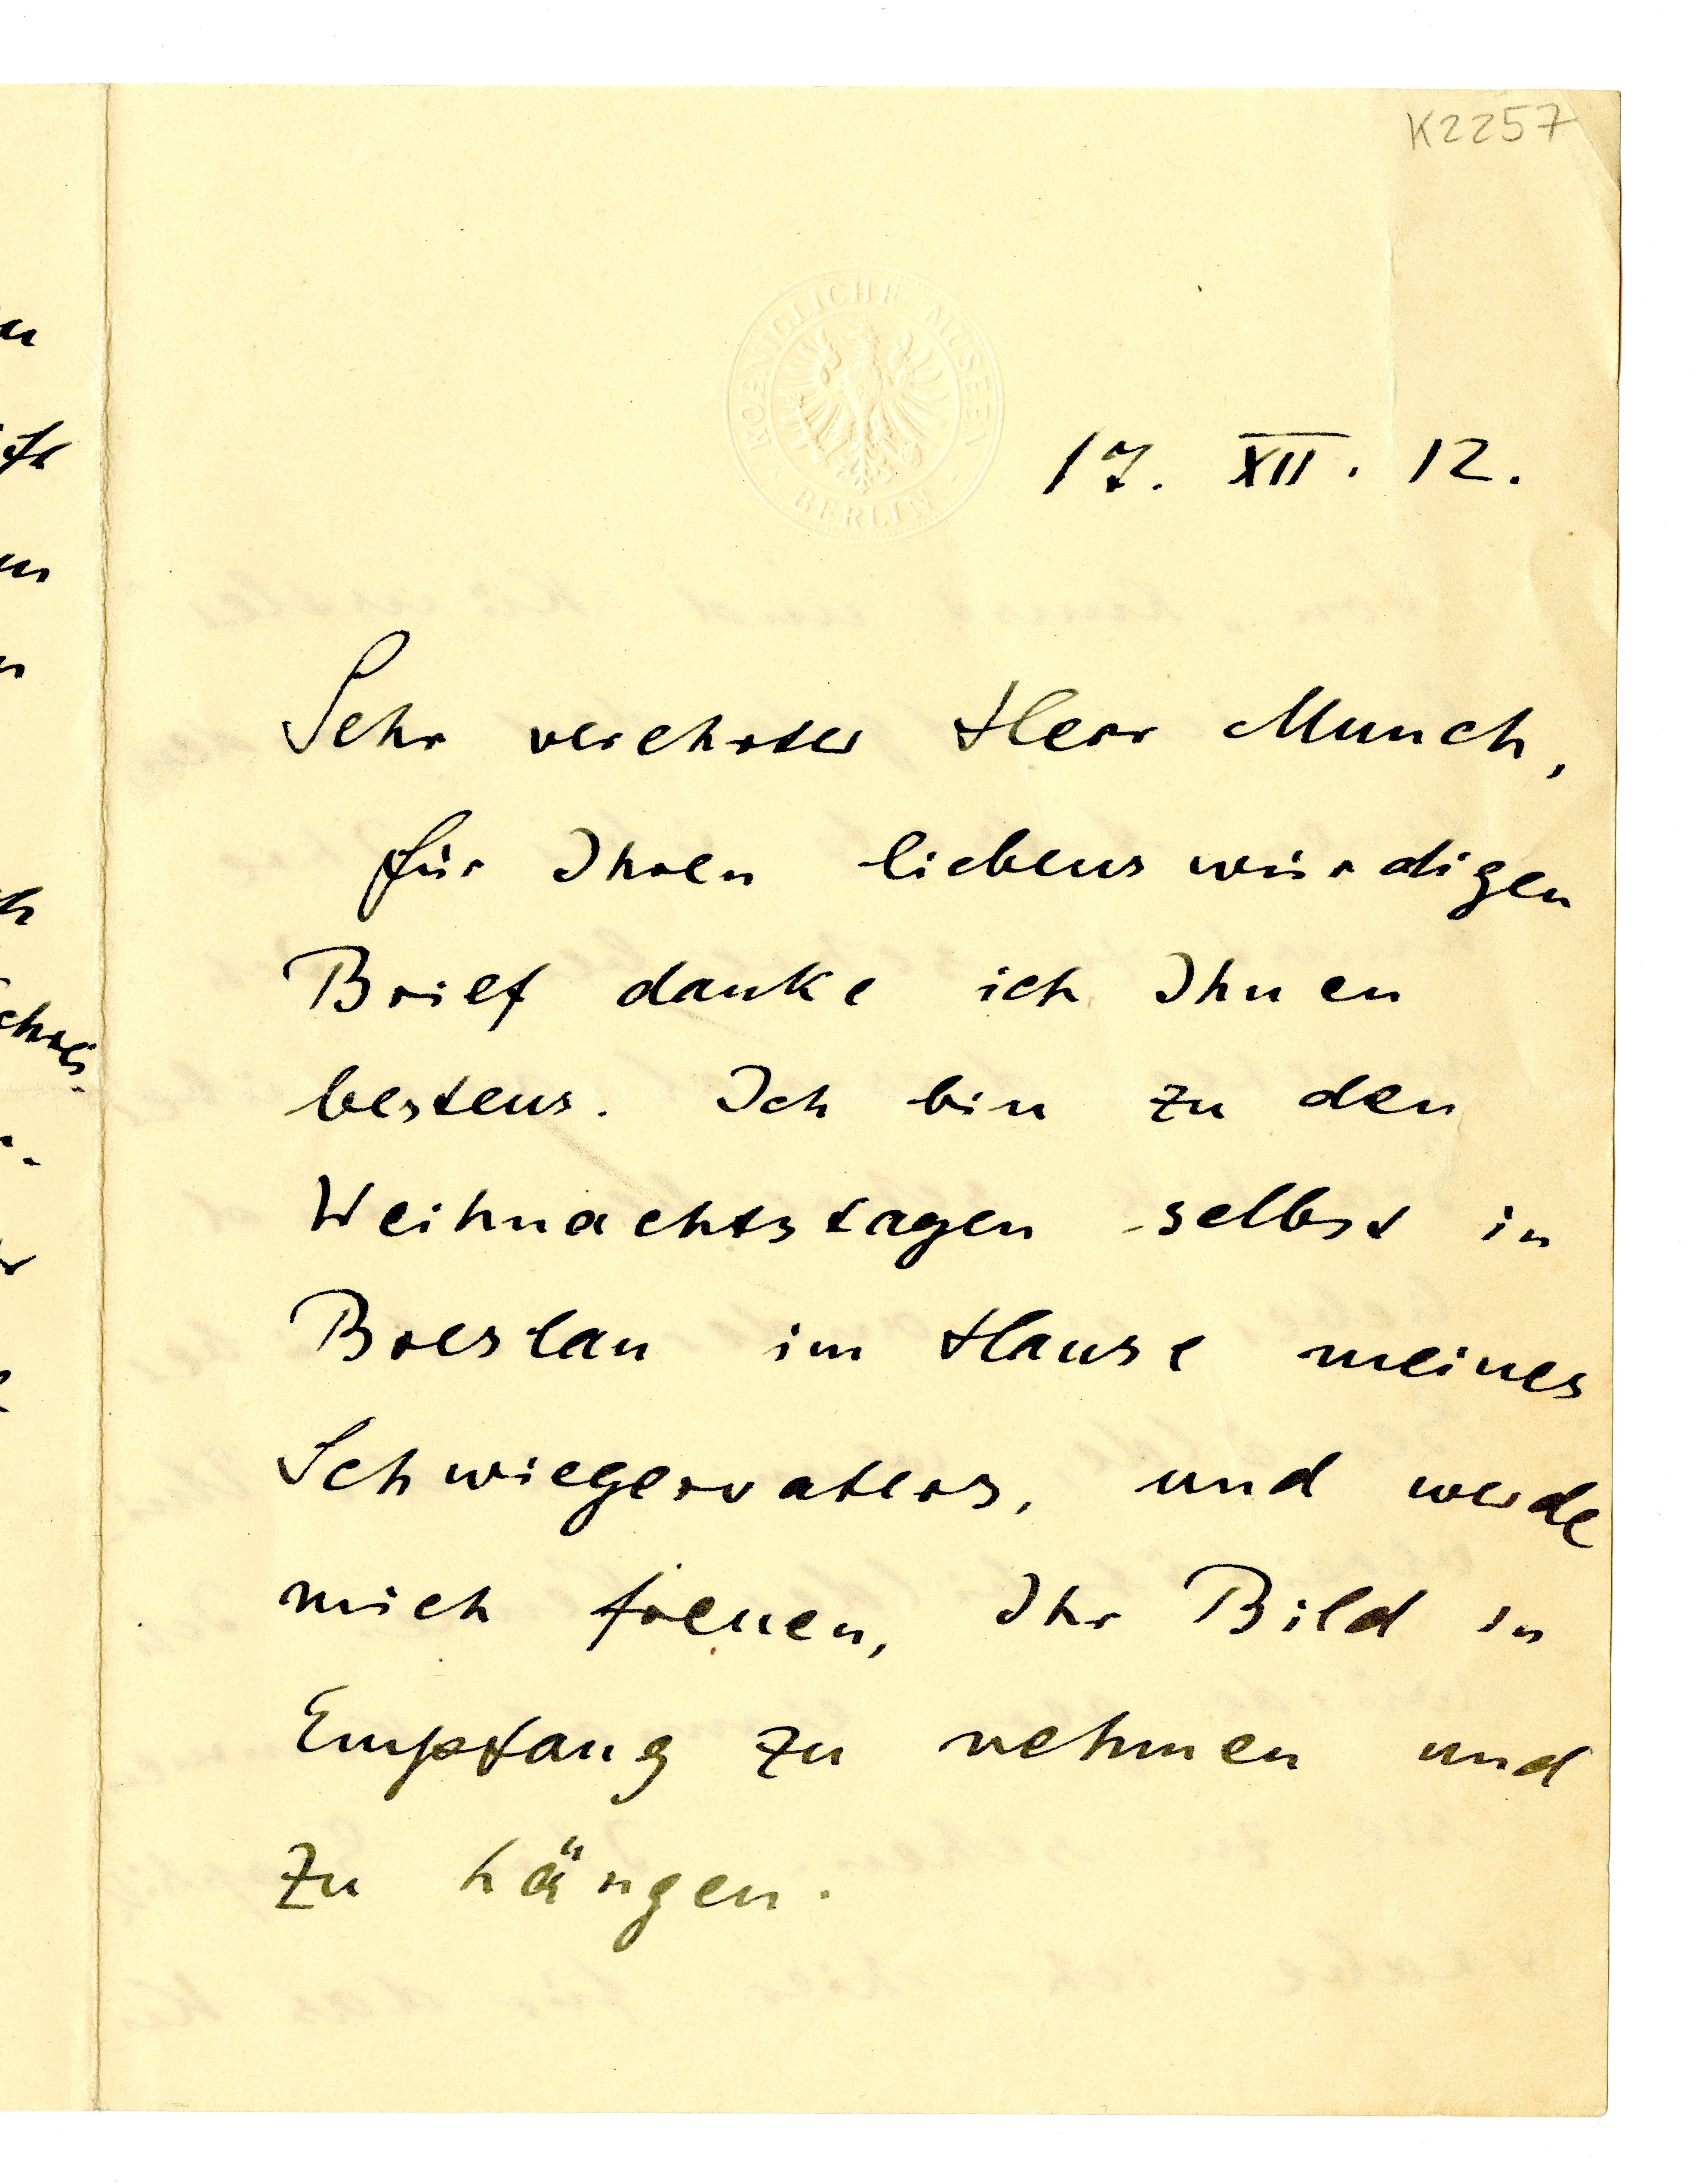 K2257
KOENIGLICHE MUSEEN
BERLIN
17. XII. 12.
Sehr verehrter Herr Munch,
für Ihren liebenswürdigen
Brief danke ich Ihnen
bestens. Ich bin zu den
Weihnachtstagen selbst in
Breslau im Hause meines
Schwiegervaters, und werde
mich freuen, Ihr Bild in
Empfang zu nehmen und
zu hängen.